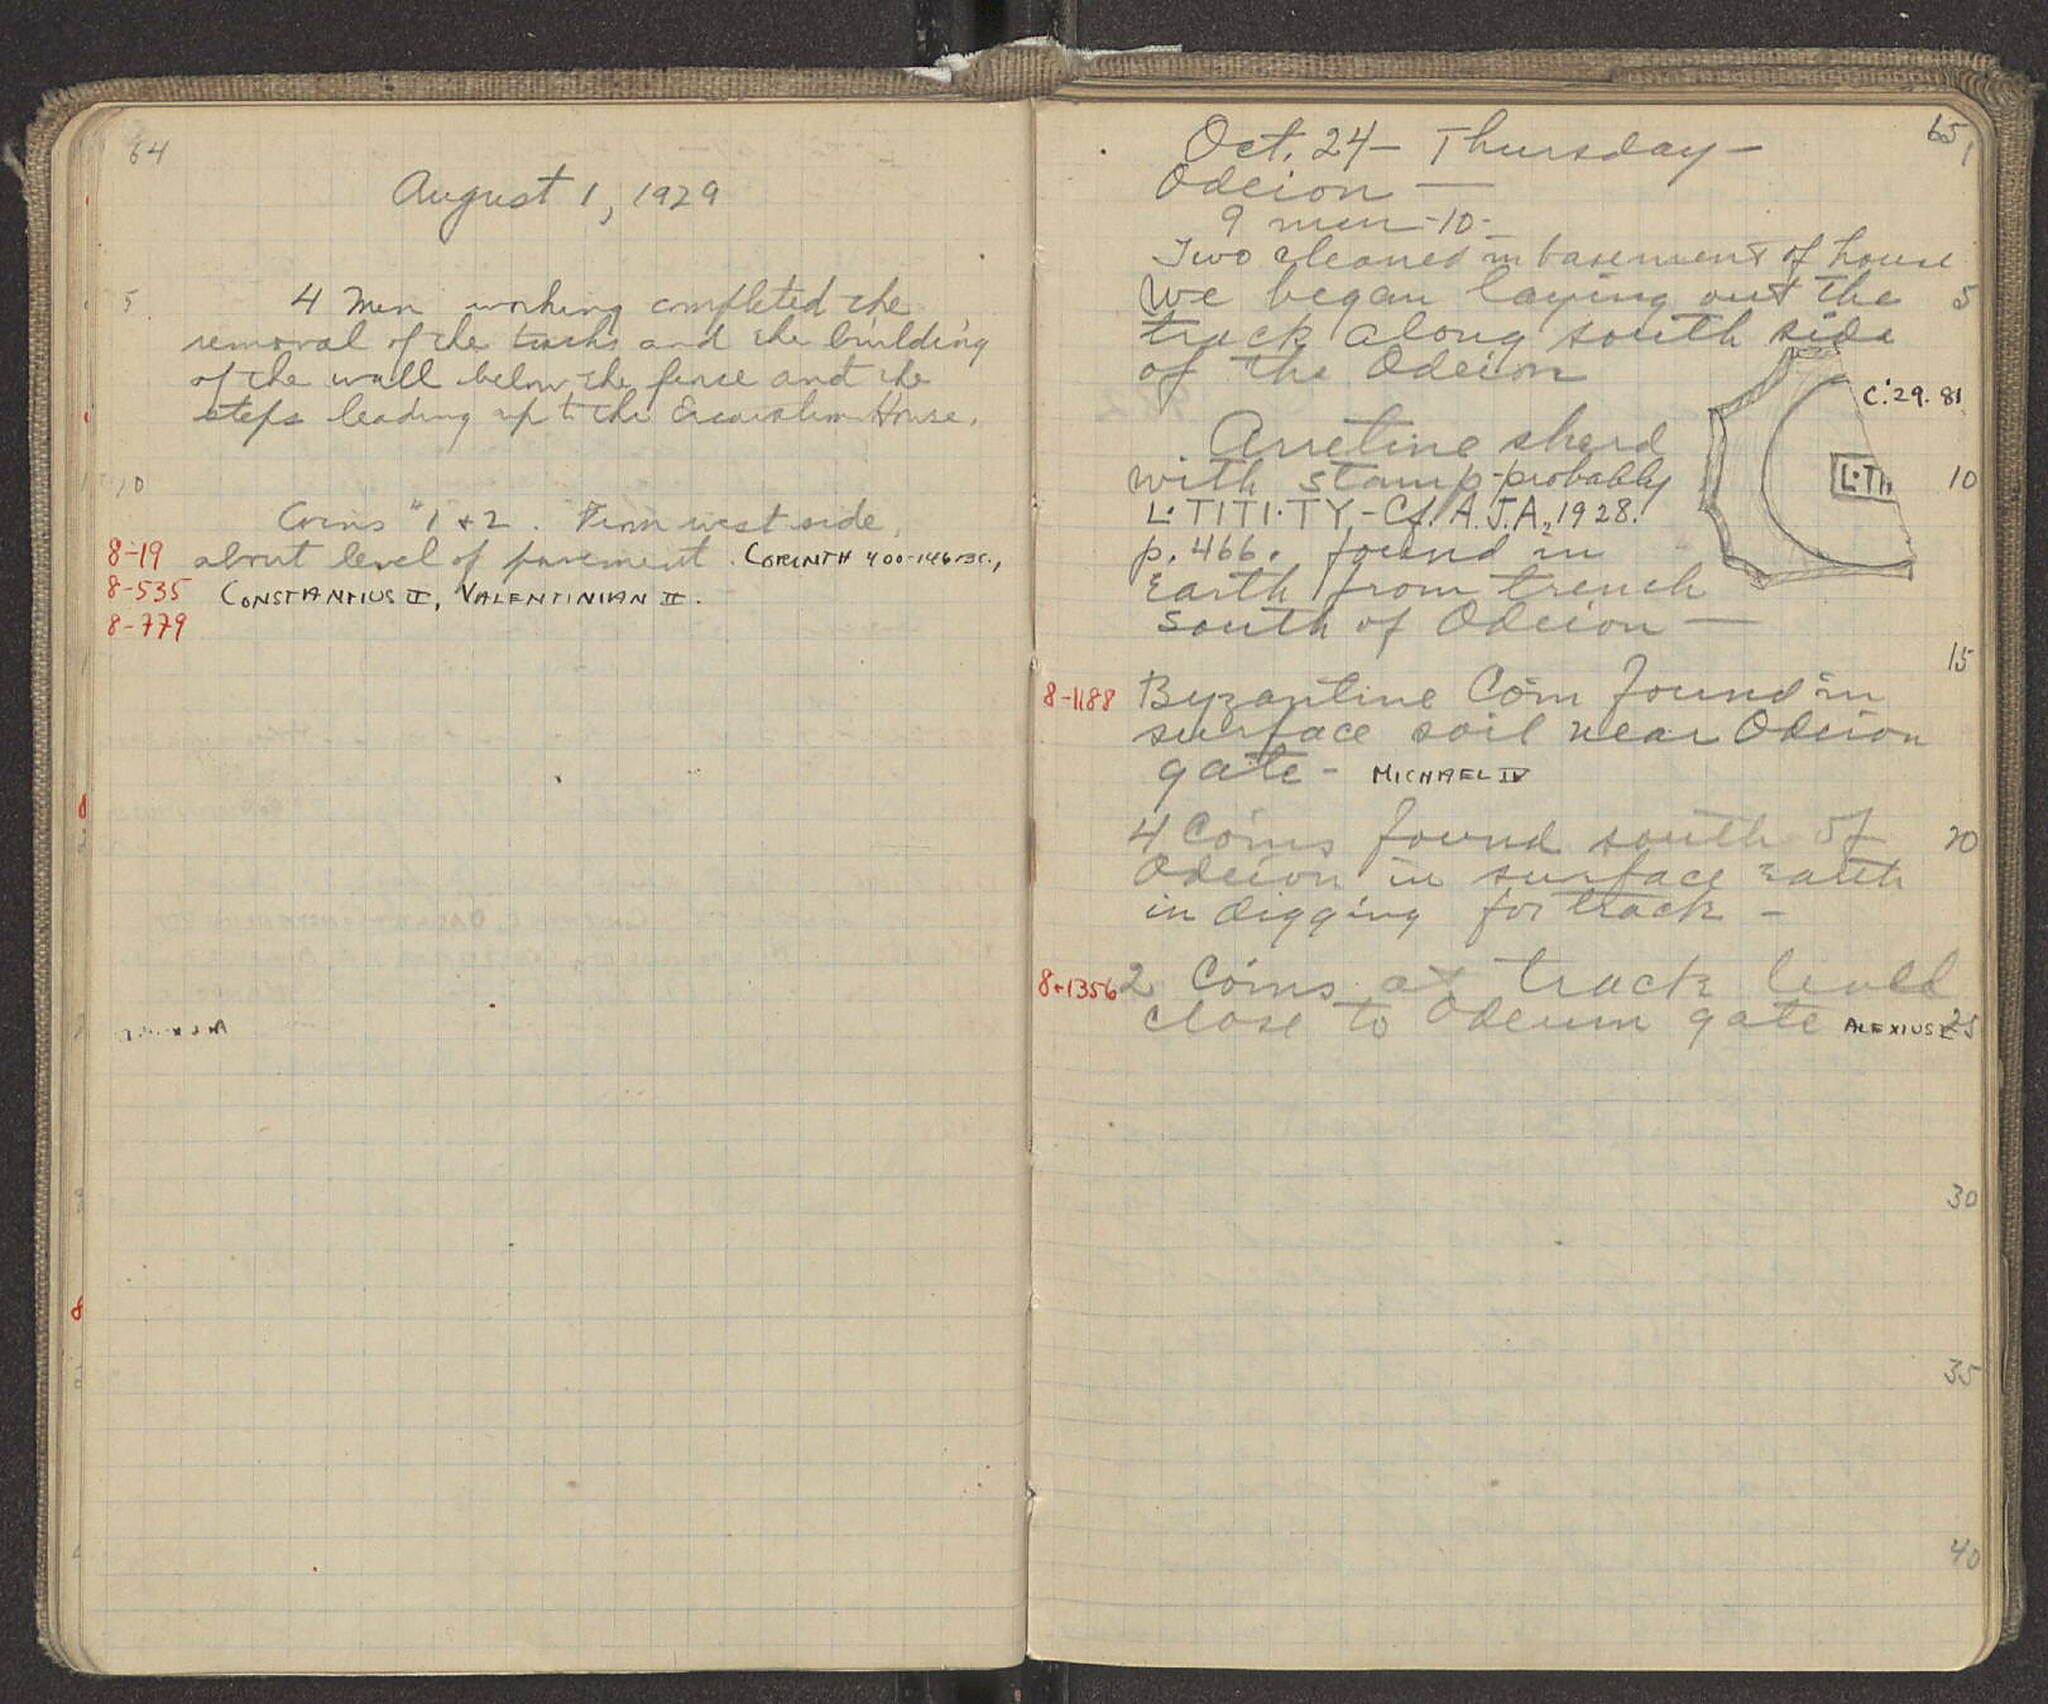 64
August 1, 1929
5
4 men working completed the
removal of the tracks and the building
of the wall below the fence and the
steps leading up to the Excavation House.
10
Coins "1 + 2. From west side,
8-19 about level of pavement. CORINTH 400-146 B.C.,
8-535 CONSTANTIUS II, VALENTINIAN II.
8-779
65
Oct. 24 - Thursday - 1
Odeion —
9 men -10-
Two cleaned in basement of house
We began laying out the 5
track along south side
of the Odeion
C. 29. 81
Arretine sherd
with stamp - probably 10
L·TITI·TY, - Cf. A.J.A., 1928.
L·TI
p. 466. found in
Earth from trench
south of Odeion —
15
8-1188 Byzantine Coin found in
surface soil near Odeion
gate - MICHAEL IV
4 Coins found south of 20
Odeion in surface earth
in digging for track -
8-1356 2 Coins at track level
close to Odeum gate ALEXIUS I 25
30
35
40